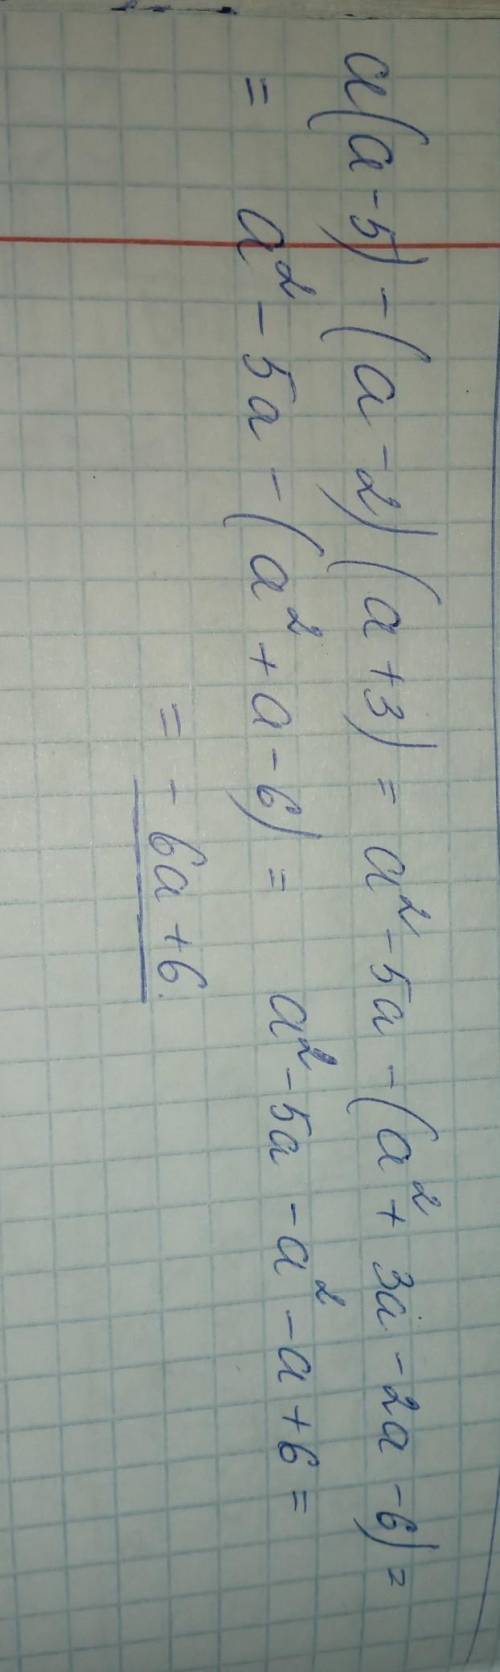 a(a-5)-(a-2)(a+3) = a²-5a-(a²+3a-2a-6) =
= a²-5a-(a²+a-6) = a²-5a-a²-a+6 =
= -6a+6.